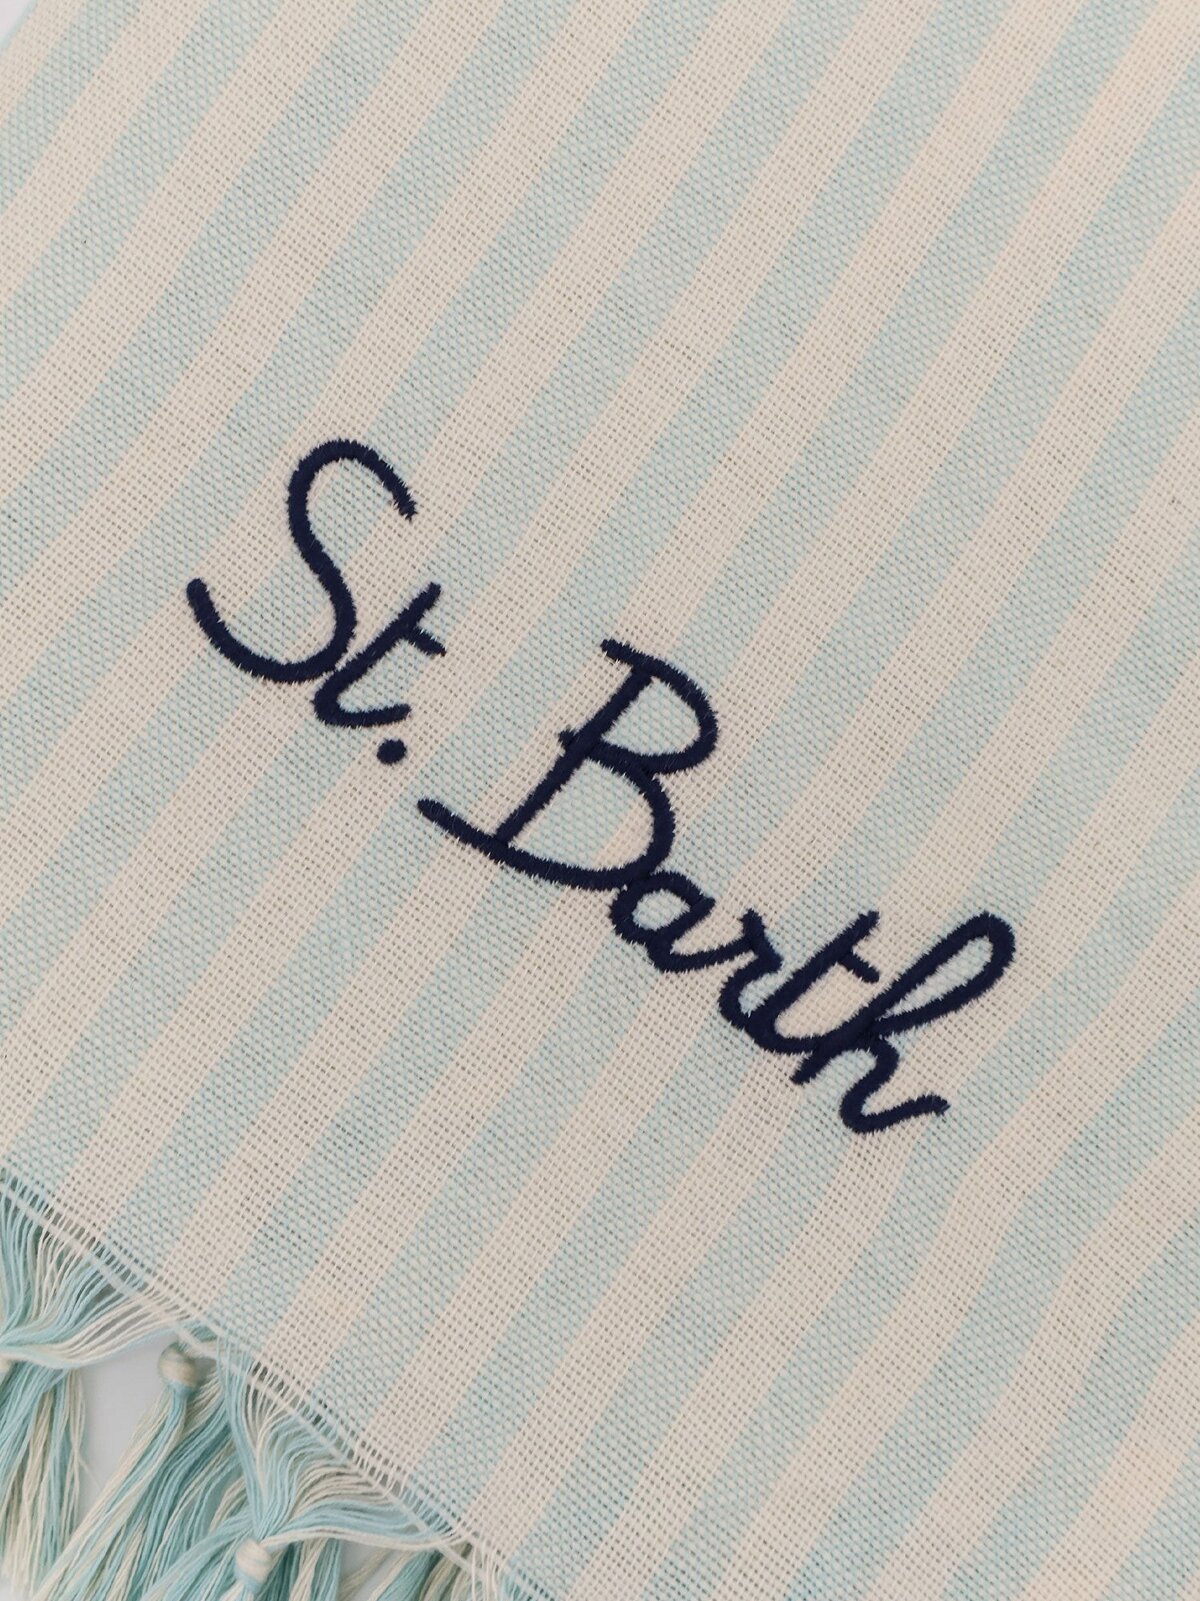 St. Barth